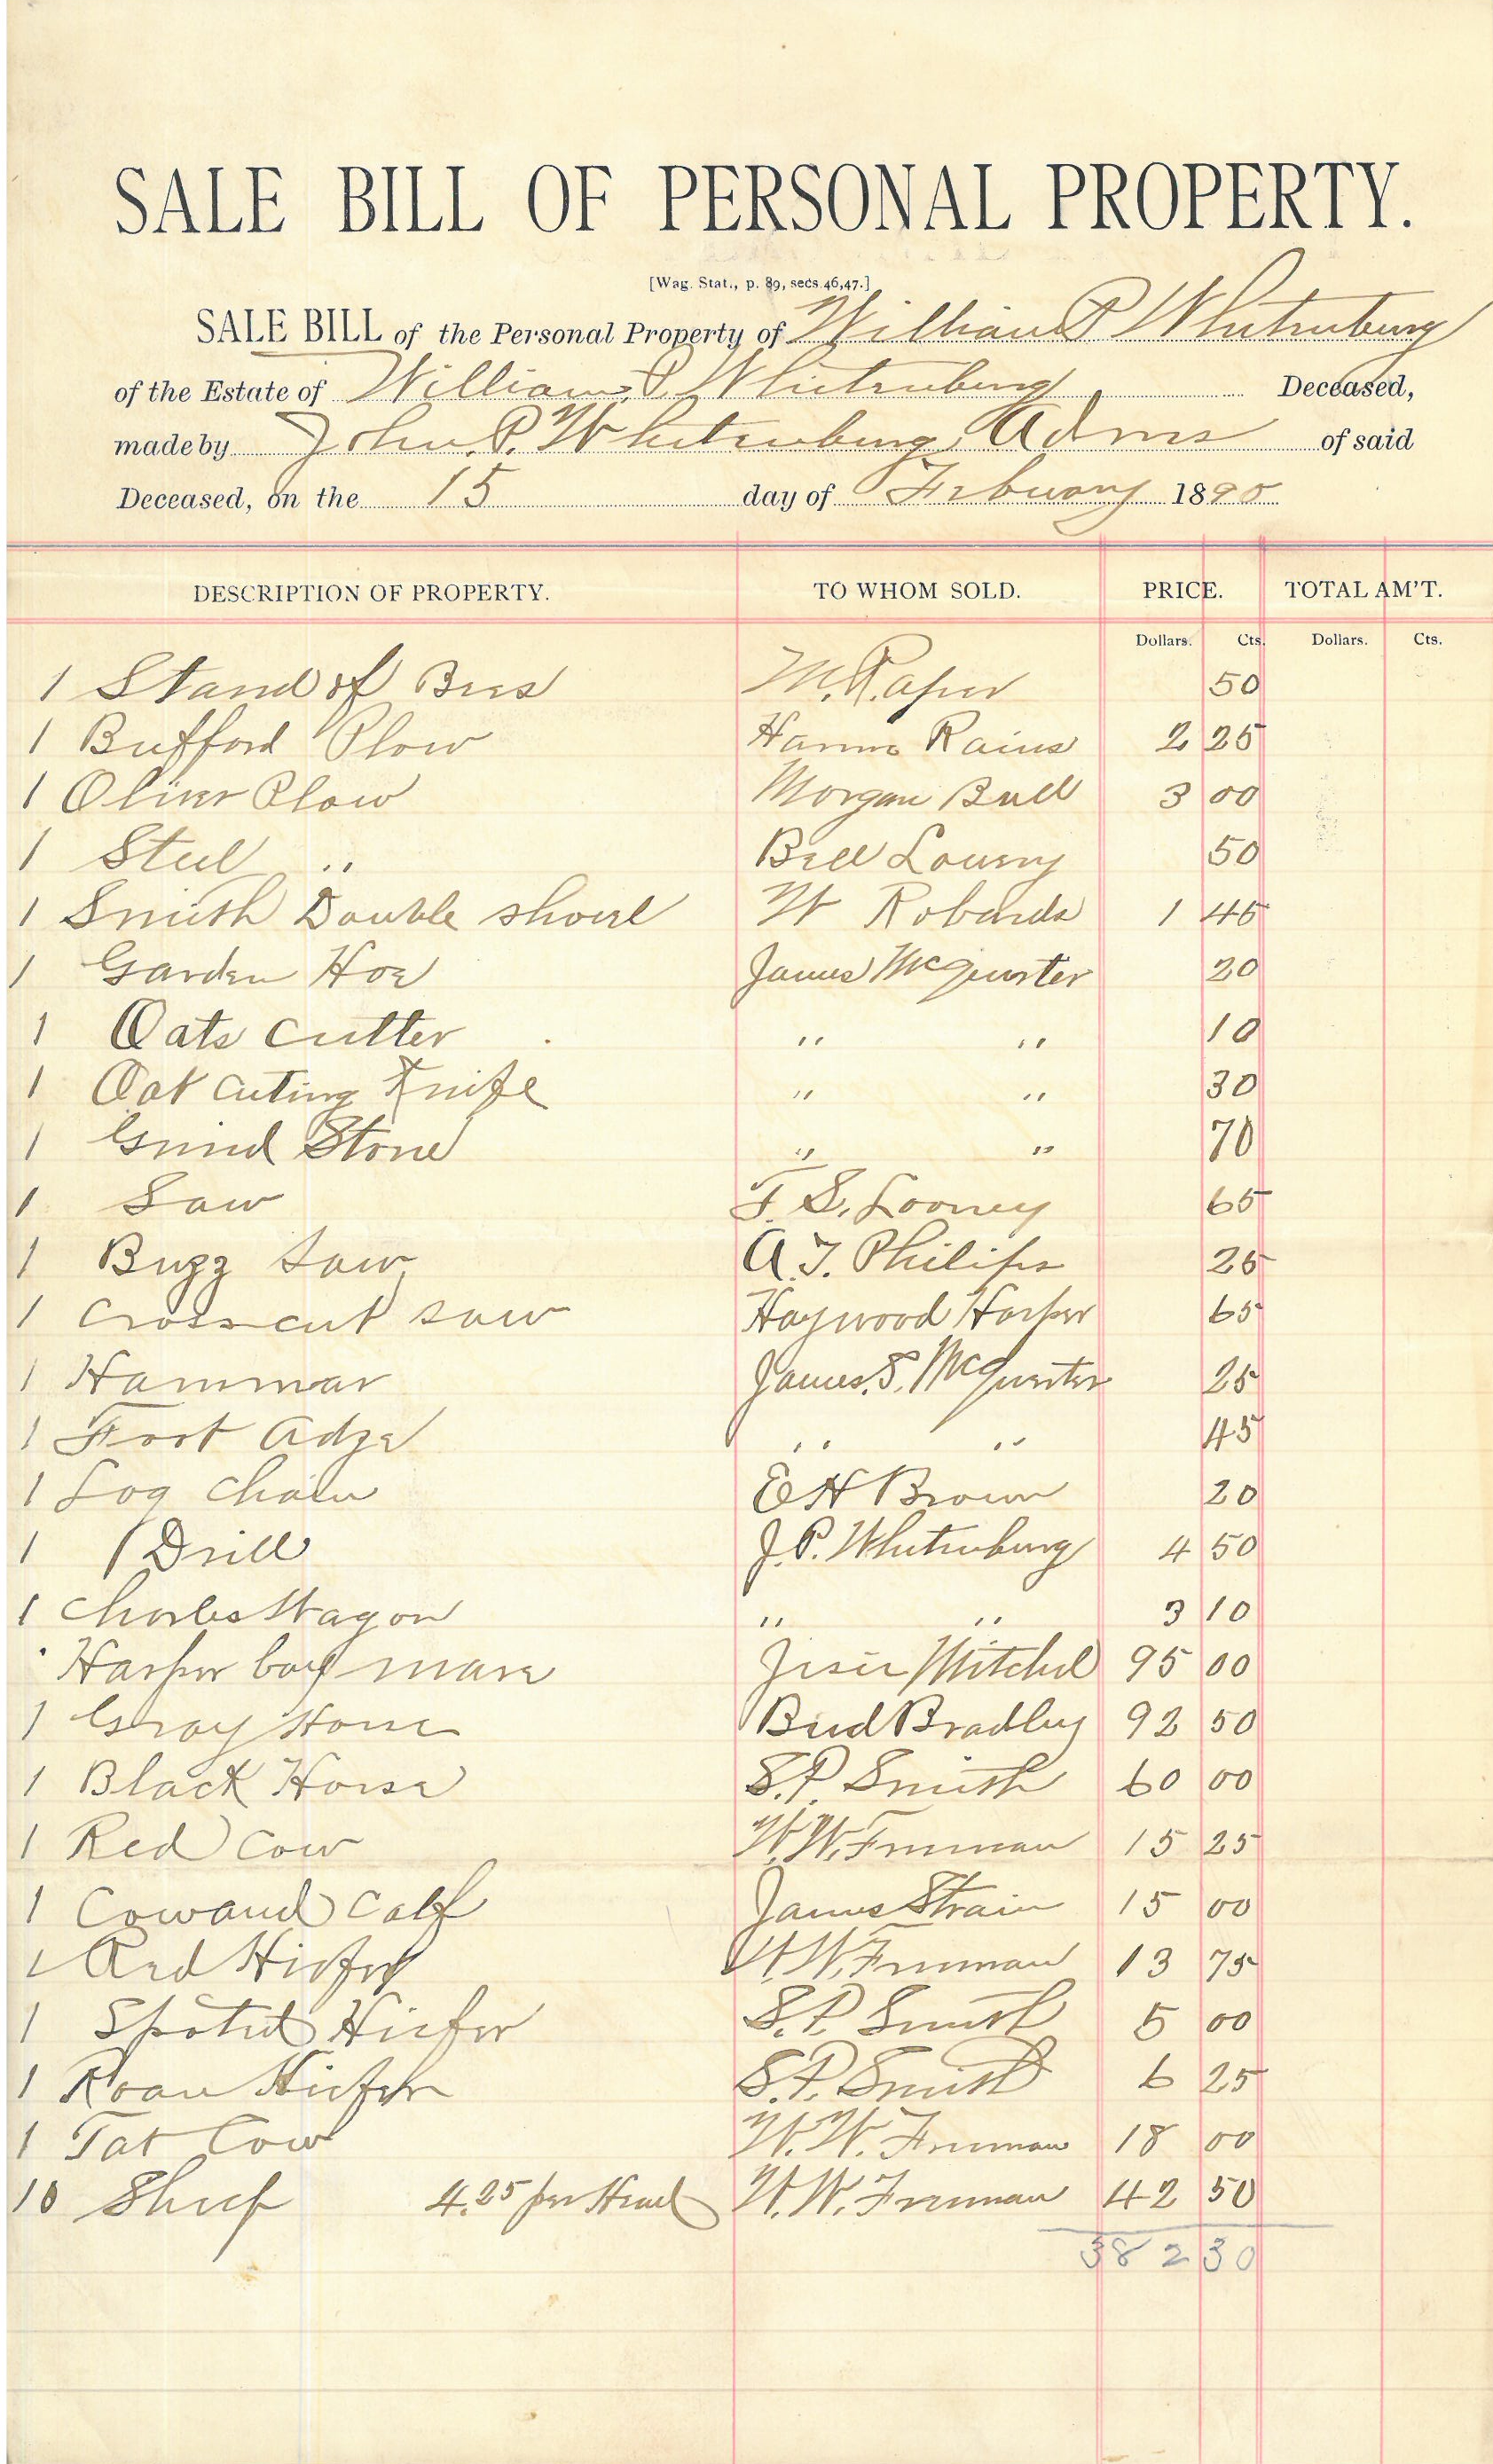 SALE BILL OF PERSONAL PROPERTY.
[Wag. Stat., p. 89, secs. 46, 47.]
SALE BILL of the Personal Property of William P Whitenburg
of the Estate of William P. Whitenburg Deceased,
made by John P. Whitenburg Adms of said
Deceased, on the 15 day of February 1890
DESCRIPTION OF PROPERTY. TO WHOM SOLD. PRICE. TOTAL AM'T.
Dollars. Cts. Dollars. Cts.
1 Stand of Bees M. Raper 50
1 Bufford Plow Rains 2 25
1 Oliver Plow Morgan Bull 3 00
1 Steel " Bill Lowery 50
1 Smith Double shovel W Robards 1 45
1 Garden Hoe James McQuirter 20
1 Oats cutter " " 10
1 Oat cuting Knife " " 30
1 Grind Stone " " 70
1 Saw T. S. Looney 65
1 Buzz saw A. T. Philips 25
1 Crosscut saw Haywood Harper 65
1 Hammar James. S. McQuirter 25
1 Foot adze " " 45
1 Log chain E H Brown 20
1 Drill J. P. Whitenburg 4 50
1 Charles Wagon " " 3 10
Harper bay mare Jesse Mitchel 95 00
1 Gray Horse Bud Bradley 92 50
1 Black Horse S. P. Smith 60 00
1 Red Cow W. W. Freeman 15 25
1 Cow and Calf James Strain 15 00
1 Red Hiefer W. W. Freeman 13 75
1 Spoted Hiefer S. P. Smith 5 00
1 Roan Hiefer S. P. Smith 6 25
1 Fat Cow W. W. Freeman 18 00
10 Sheep 4.25 per Head W. W. Freeman 42 50
382 30